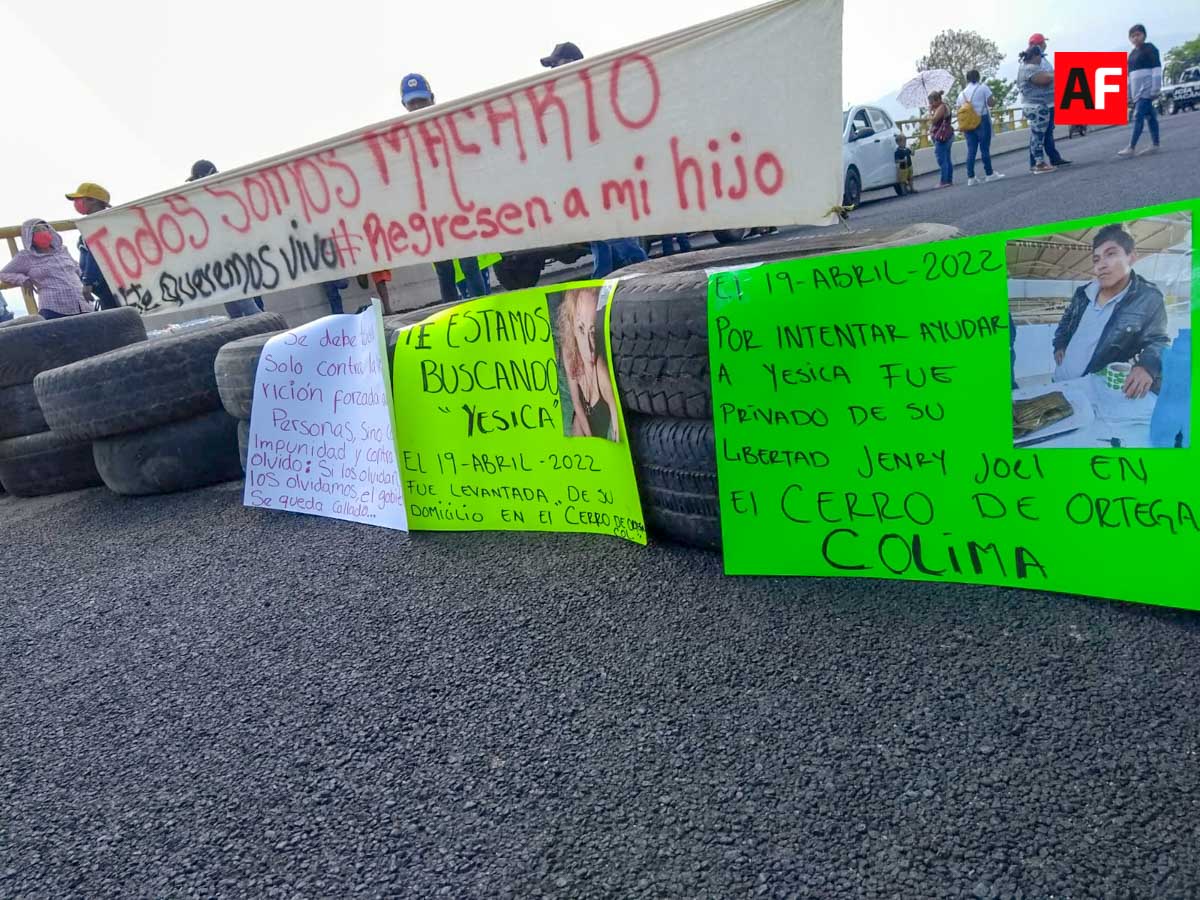 AF
Todos Somos MACARIO
te queremos vivo #Regresen a mi hijo
Se debe
Solo contra la
rición forzada
Personas, sino
Impunidad y contra
olvido; Si los olvidan
los olvidamos, el
Se queda callado...
TE ESTAMOS
BUSCANDO
"YESICA"
EL 19-ABRIL-2022
FUE LEVANTADA DE SU
DOMICILIO EN EL "CERRO DE ORTEGA
COL"
El 19-ABRIL-2022
POR INTENTAR AYUDAR
A YESICA FUE
PRIVADO DE SU
LIBERTAD JENRY JOEL EN
El CERRO DE ORTEGA
COLIMA